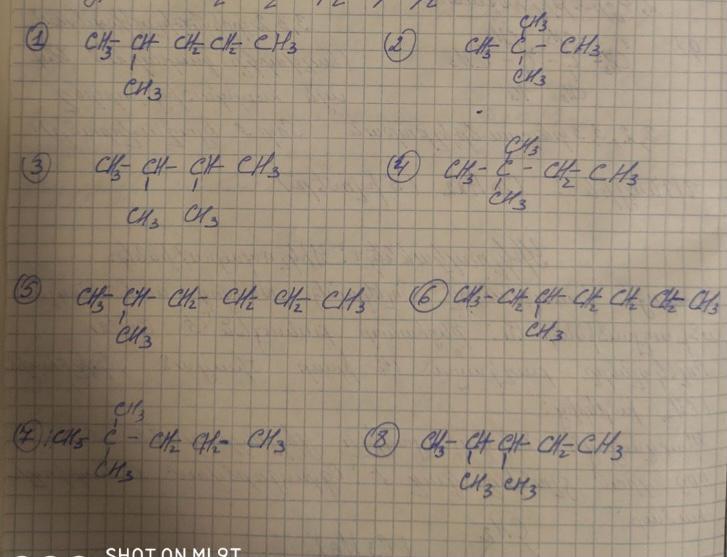 ① CH₃- CH- CH₂- CH₂- CH₃
CH₃
② CH₃
CH₃- C - CH₃
CH₃
③ CH₃- CH- CH- CH₃
CH₃ CH₃
④ CH₃
CH₃- C - CH₂- CH₃
CH₃
⑤ CH₃- CH- CH₂- CH₂- CH₂- CH₃
CH₃
⑥ CH₃- CH₂- CH- CH₂- CH₂- CH₂- CH₃
CH₃
⑦ CH₃
CH₃ C - CH₂- CH₂- CH₃
CH₃
⑧ CH₃- CH- CH- CH₂- CH₃
CH₃ CH₃
SHOT ON MI 9T